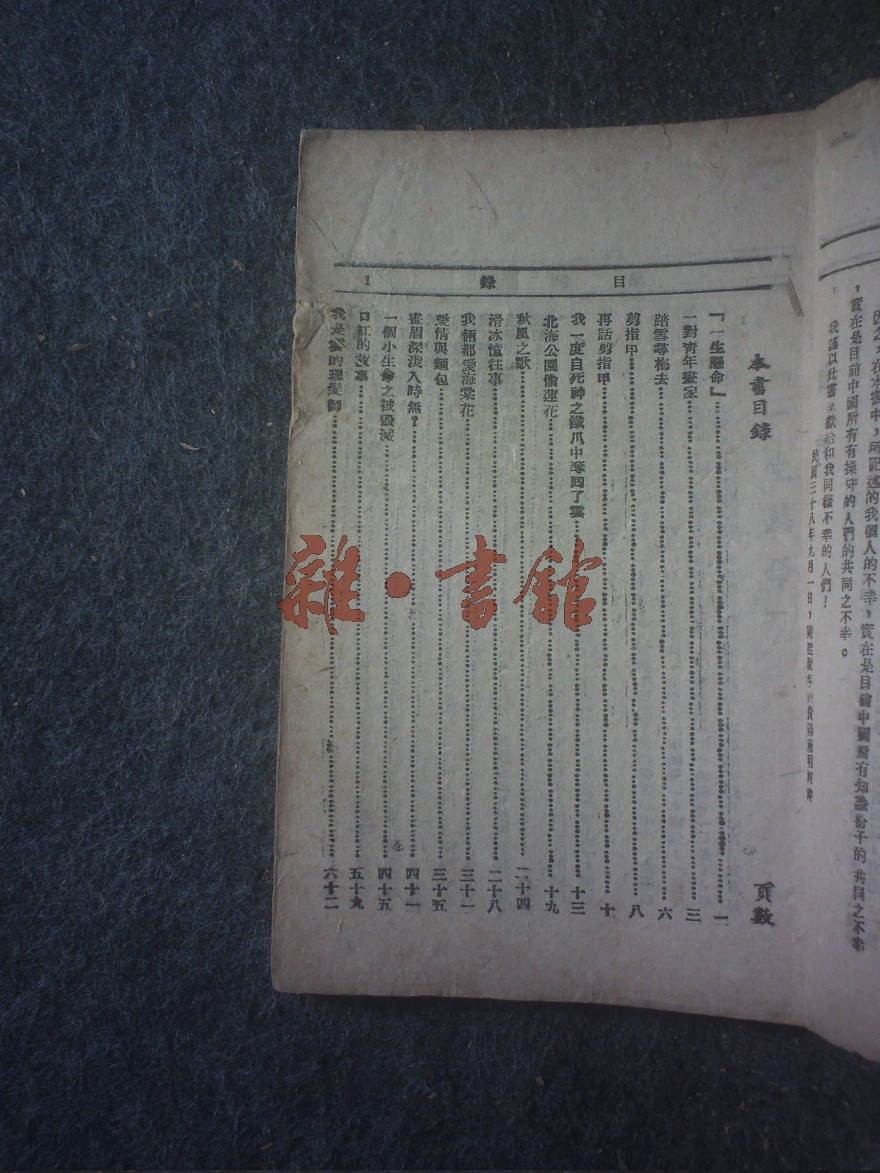 實在是目前中國所有知識份子的共同之不幸
，實在是目前中國所有有操守的人們的共同之不幸。
我謹以此書呈獻給和我同樣不幸的人們！
民國三十八年九月一日，
目錄 1
本書目錄 頁數
「一生懸命」 一
一對青年畫家 三
踏雪尋梅去 六
剪指甲 八
再話剪指甲 十
我一度自死神之鐵爪中奪回了雲 十三
北海公園偷蓮花 十九
秋風之歌 二十四
滑冰憶往事 二十八
我倆都愛海棠花 三十一
愛情與麵包 三十五
畫眉深淺入時無？ 四十一
一個小生命之被毀滅 四十五
口紅的故事 五十九
我是雲的理髮師 六十二
雜·書館